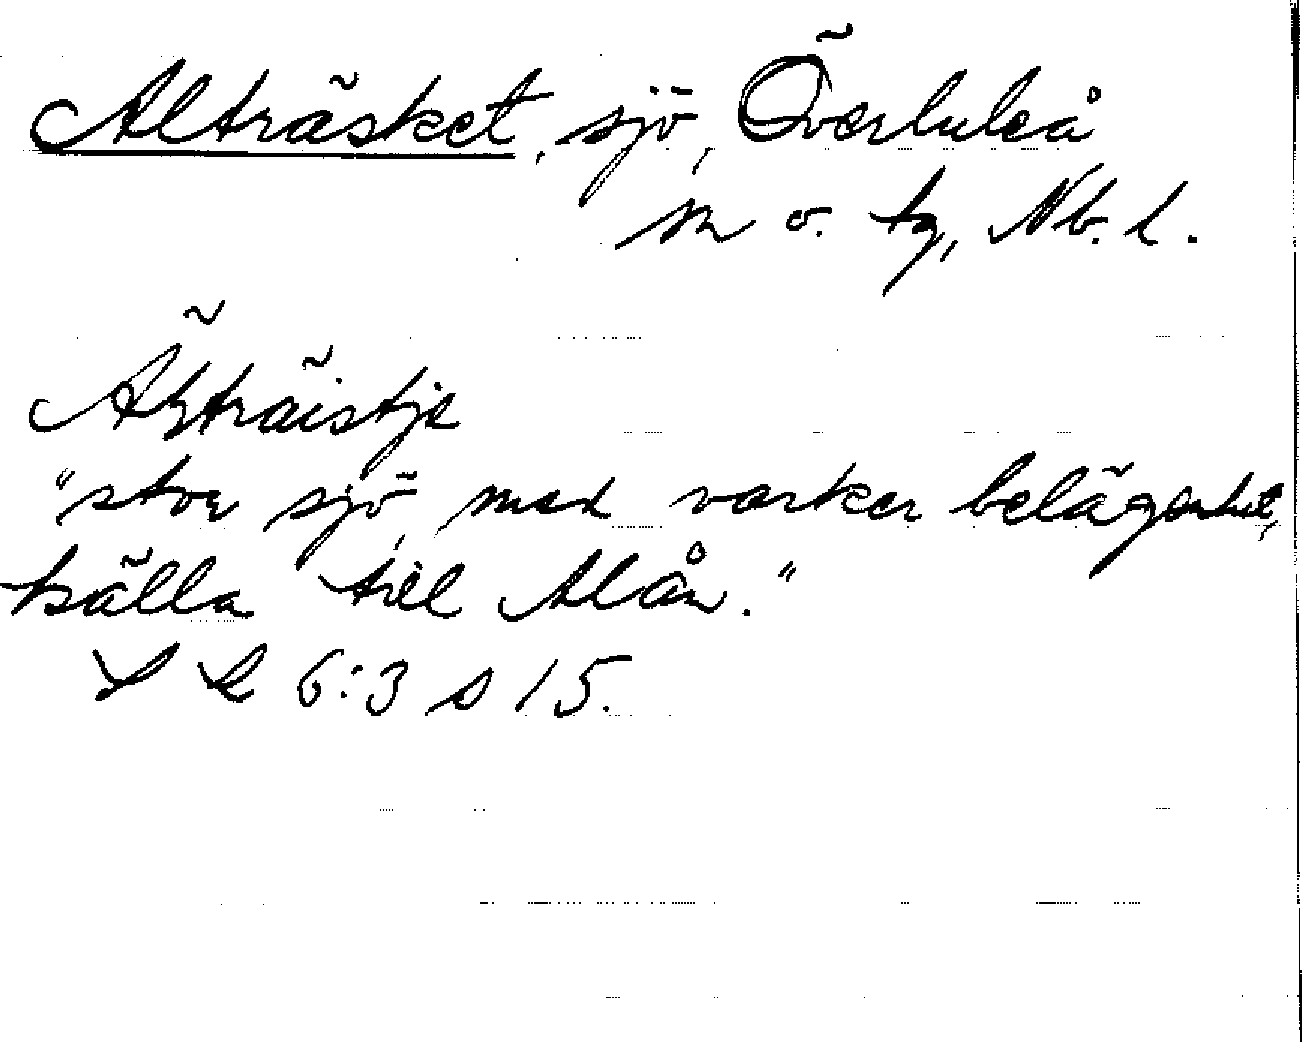 Alträsket, sjö, Överluleå
sn o. tg, Nb. l.
Älträistje
"stor sjö, med vacker belägenhet,
källa till Alån."
S L 6:3 s 15.